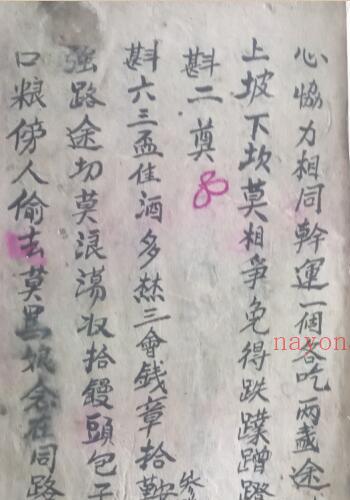 心恊力相同幹運一個各吃兩盞途
上坡下坎莫相爭免得跌蹼蹭蹬
斟二奠
斟六三盃佳酒多燃三會錢章拾
強路途切莫浪蕩收拾饅頭包子
口粮俤人偷去莫罵在同路
nayon